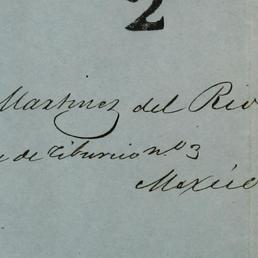 2
Martinez del Rio
de Tiburcio n.º 3
Mexico